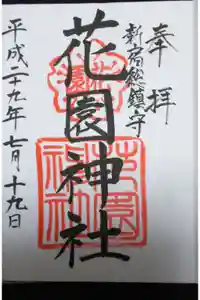 奉拝
新宿総鎮守
花園神社
平成二十九年七月十九日
花園神社